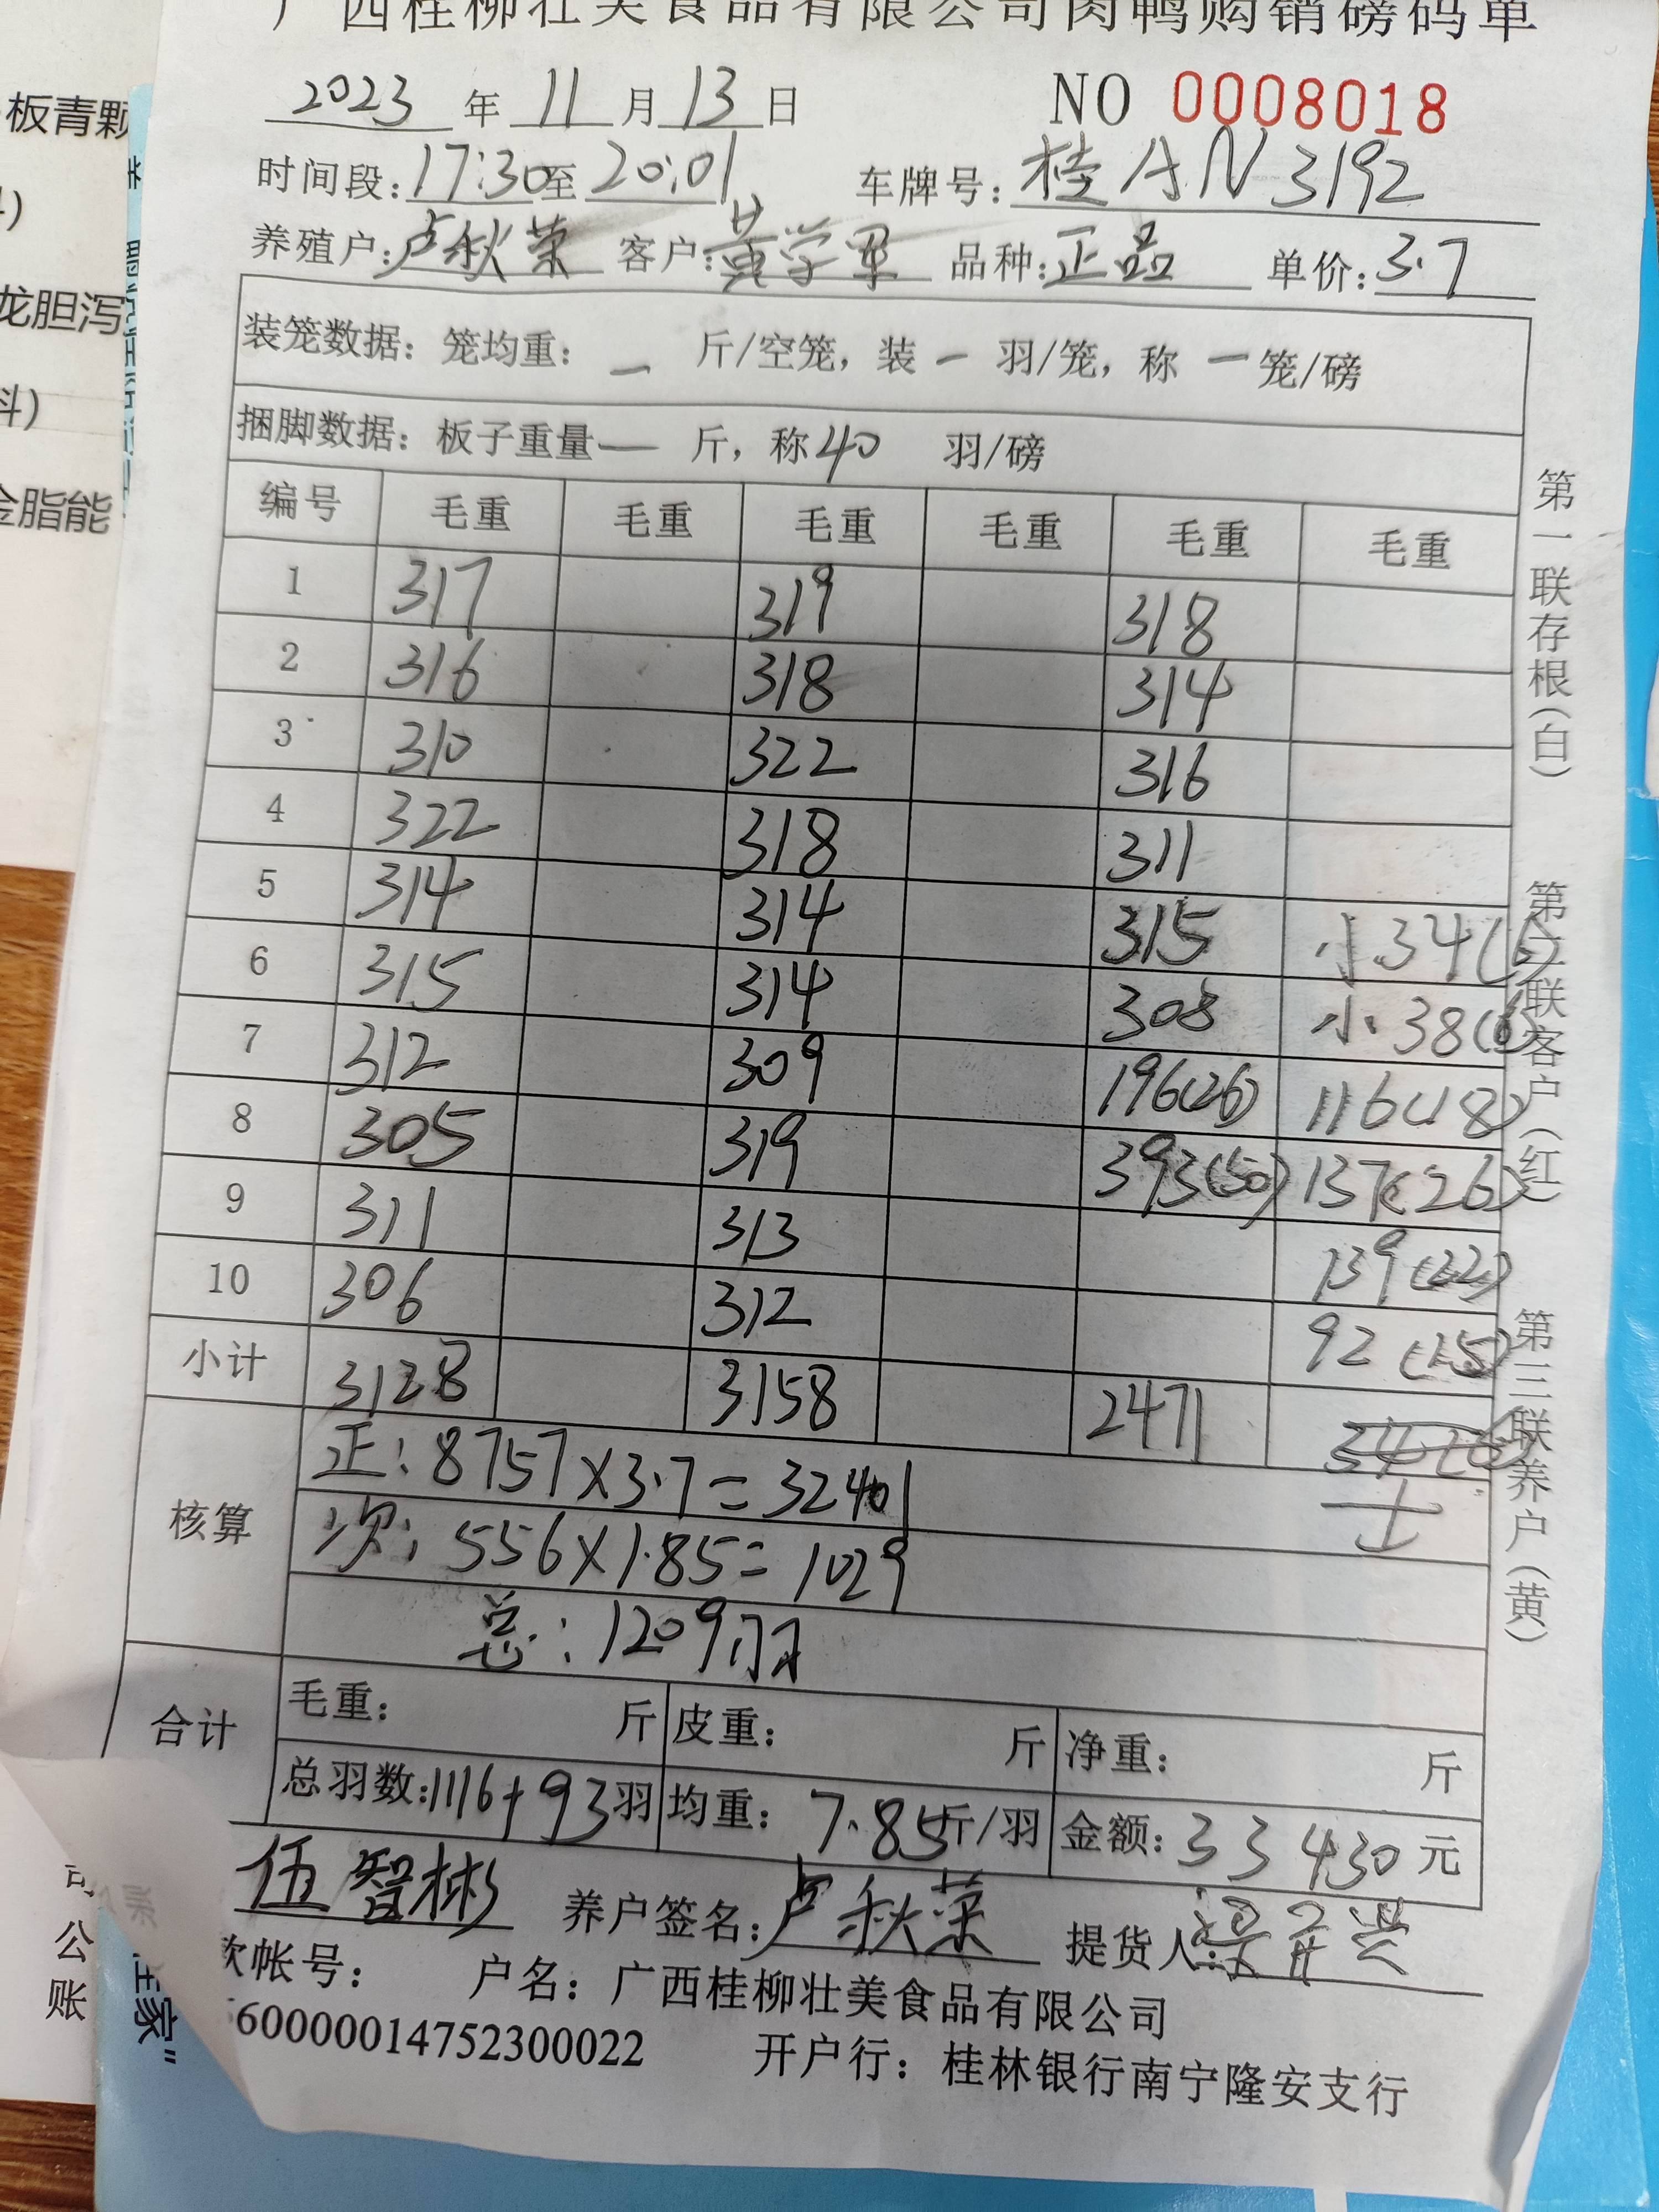 广西桂柳壮美食品有限公司肉鸭购销磅码单
2023 年 11 月 13 日 NO 0008018
时间段:17:30至20:01 车牌号:桂AN3192
养殖户:卢秋荣 客户:黄学军 品种:正品 单价:3.7
装笼数据:笼均重: — 斤/空笼,装 — 羽/笼,称 — 笼/磅
捆脚数据:板子重量 — 斤,称 40 羽/磅
编号 毛重 毛重 毛重 毛重 毛重 毛重
1 317 319 318
2 316 318 314
3 310 322 316
4 322 318 311
5 314 314 315 小34
6 315 314 308 小38(6)
7 312 309 196(26) 116(18)
8 305 319 393(50) 137(26)
9 311 313 139(22)
10 306 312 92(15)
小计 3128 3158 2471
核算
正:8757×3.7=32401
次:556×1.85=1029
总:1209羽
合计
毛重: 斤 皮重: 斤 净重: 斤
总羽数:1116+93羽 均重:7.85斤/羽 金额:33430元
伍智彬 养户签名:卢秋荣 提货人:
帐号: 户名:广西桂柳壮美食品有限公司
600000014752300022 开户行:桂林银行南宁隆安支行
第一联存根(白)
第二联客户(红)
第三联养户(黄)
板青颗
龙胆泻
料)
金脂能
司
公
账